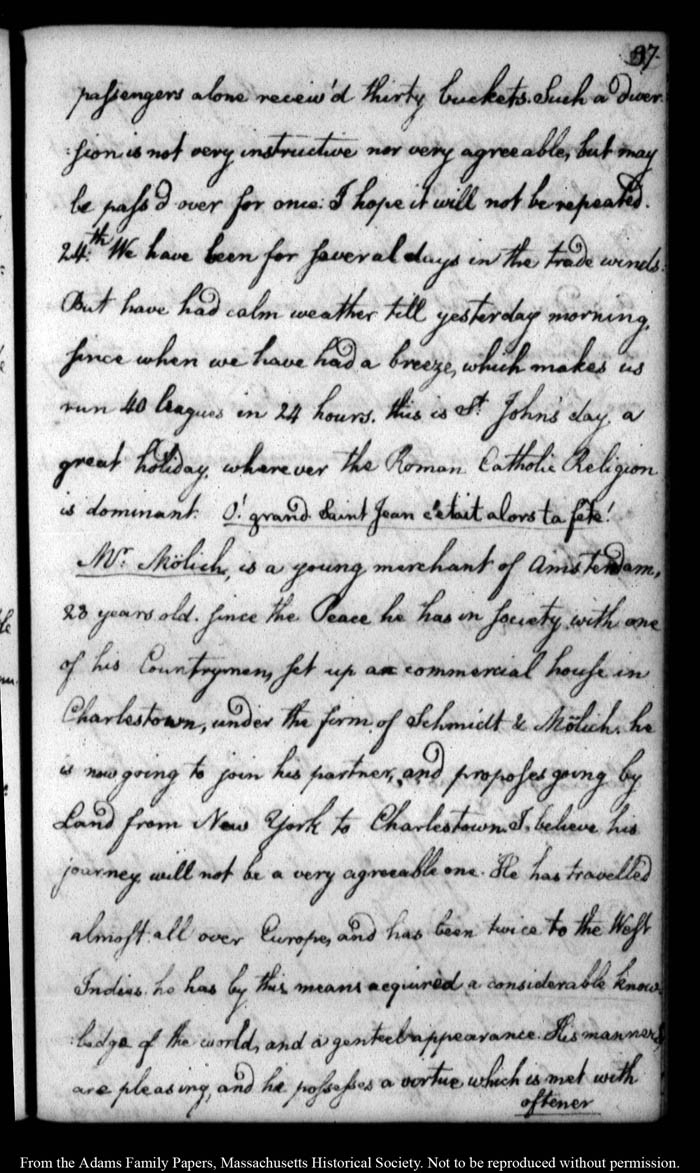 37.
passengers alone receiv'd thirty buckets. Such a diver
:sion is not very instructive nor very agreeable, but may
be pass'd over for once: I hope it will not be repeated.
24.th We have been for several days in the trade winds:
But have had calm weather till yesterday morning,
since when we have had a breeze, which makes us
run 40 leagues in 24 hours. this is St. John's day, a
great holiday, wherever the Roman Catholic Religion
is dominant. O! grand Saint Jean c'etait alors ta fête!
Mr. Mölich, is a young merchant of Amsterdam,
23 years old. since the Peace he has in society with one
of his Countrymen, set up a commercial house in
Charlestown, under the firm of Schmidt & Mölich. he
is now going to join his partner, and proposes going by
Land from New York to Charlestown. I believe his
journey will not be a very agreeable one. He has travelled
almost all over Europe, and has been twice to the West
Indies. he has by this means acquired a considerable know
:ledge of the world, and a genteel appearance. His manners
are pleasing, and he possesses a virtue which is met with
oftener
From the Adams Family Papers, Massachusetts Historical Society. Not to be reproduced without permission.